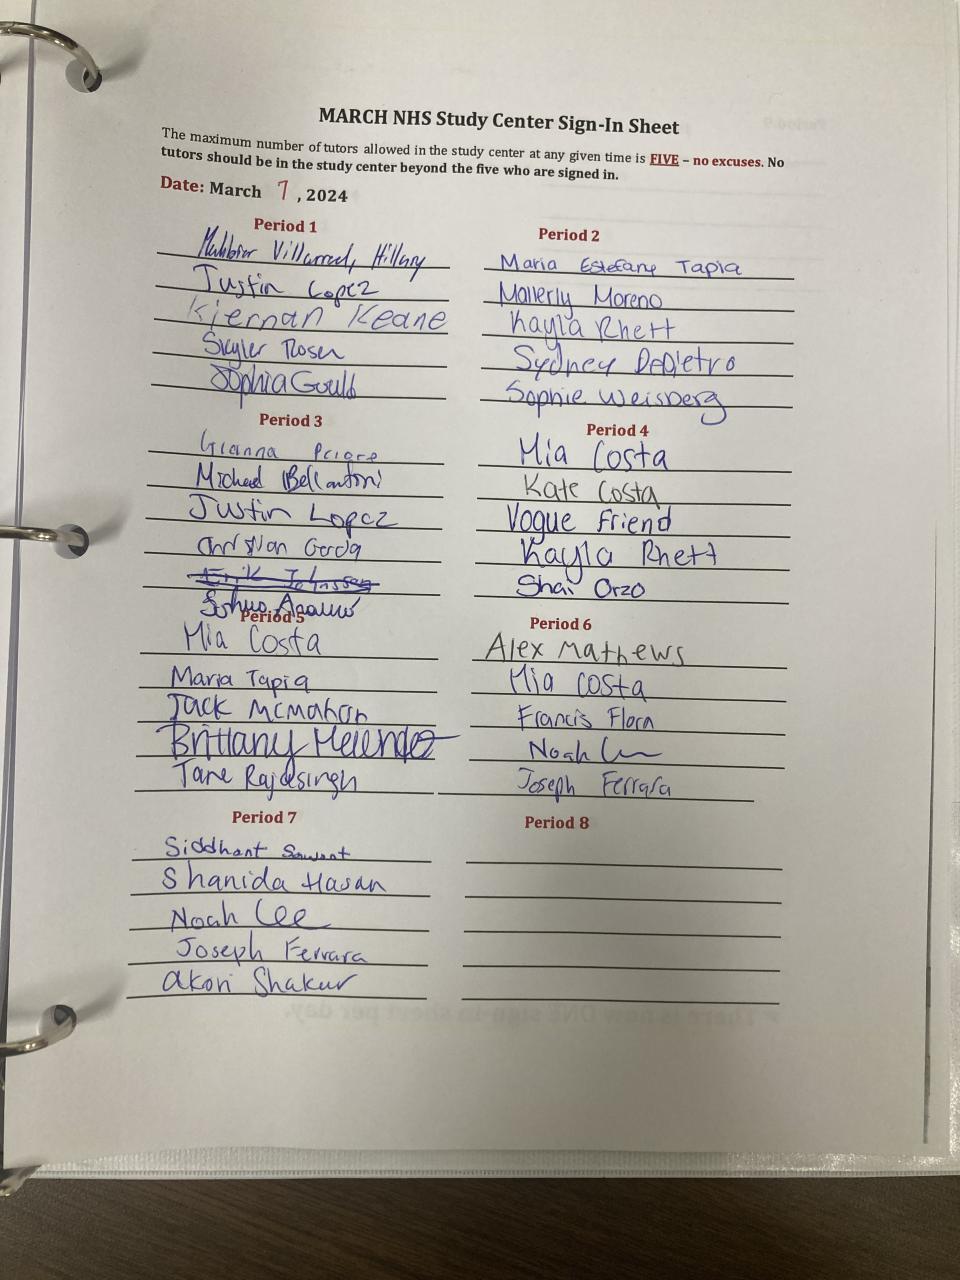 MARCH NHS Study Center Sign-In Sheet
The maximum number of tutors allowed in the study center at any given time is FIVE – no excuses. No
tutors should be in the study center beyond the five who are signed in.
Date: March 7, 2024
Period 1
Villarreal, Hillary
Justin Lopez
Kiernan Keane
Skyler Rosen
Sophia Gould
Period 2
Maria Estefany Tapia
Mallerly Moreno
Kayla Rhett
Sydney DePietro
Sophie Weisberg
Period 3
Gianna Priore
Michael Bellantoni
Justin Lopez
Christian Gorda
Erik Johnson
Period 4
Mia Costa
Kate Costa
Vogue Friend
Kayla Rhett
Shai Orzo
Period 5
Mia Costa
Maria Tapia
Jack McMahon
Brittany Melendez
Tane Rajasingh
Period 6
Alex Mathews
Mia Costa
Francis Flora
Noah Lee
Joseph Ferrara
Period 7
Siddhant Sawant
Shanida Hasan
Noah Lee
Joseph Ferrara
Akori Shakur
Period 8